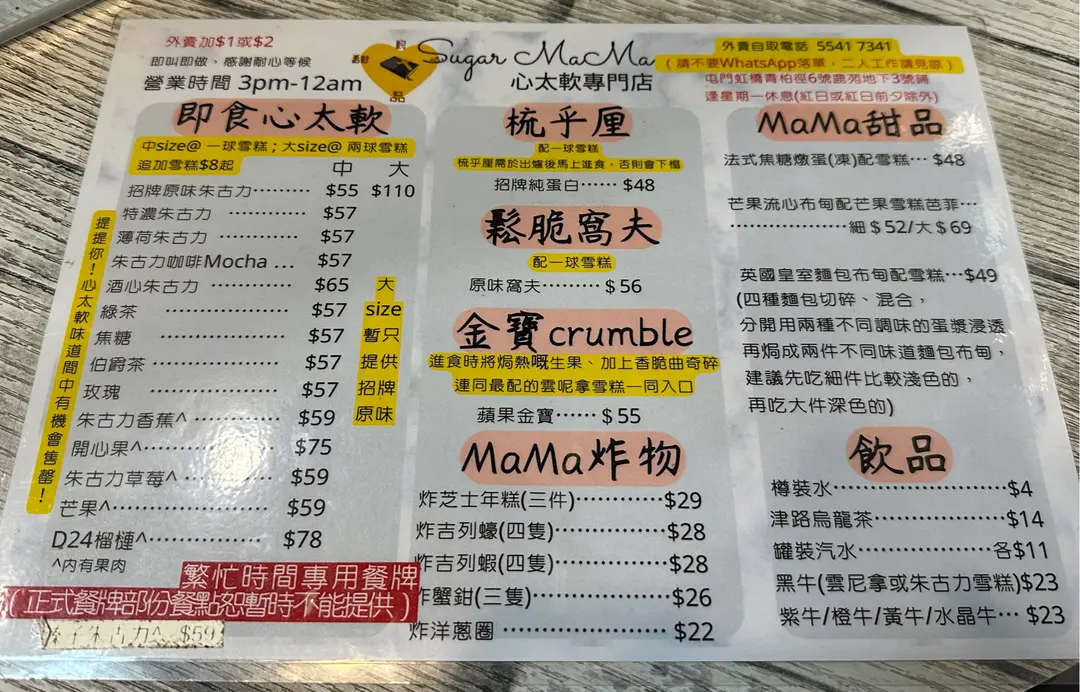 外賣加$1或$2
即叫即做，感謝耐心等候
營業時間 3pm-12am
Sugar MaMa
心太軟專門店
外賣自取電話 5541 7341
(請不要WhatsApp落單，二人工作請見諒)
屯門虹橋青柏徑6號鹿苑地下3號鋪
逢星期一休息(紅日或紅日前夕除外)
即食心太軟
中size@ 一球雪糕；大size@ 兩球雪糕
追加雪糕$8起
中 大
招牌原味朱古力········· $55 $110
特濃朱古力 ············ $57
薄荷朱古力 ············ $57
朱古力咖啡Mocha ... $57
酒心朱古力 ············ $65
綠茶 ·················· $57
焦糖 ·················· $57
伯爵茶 ··············· $57
玫瑰 ·················· $57
朱古力香蕉^ ············ $59
開心果^·················· $75
朱古力草莓^ ············ $59
芒果^····················· $59
D24榴槤^··············· $78
^內有果肉
提提你！心太軟味道間中有機會售罄！
大
size
暫只
提供
招牌
原味
繁忙時間專用餐牌
(正式餐牌部份餐點恕暫時不能提供)
朱古力^ $59
梳乎厘
配一球雪糕
梳乎厘需於出爐後馬上進食，否則會下榻
招牌純蛋白······ $48
鬆脆窩夫
配一球雪糕
原味窩夫········· $56
金寶crumble
進食時將焗熱嘅生果、加上香脆曲奇碎
連同最配的雲呢拿雪糕一同入口
蘋果金寶······ $55
MaMa炸物
炸芝士年糕(三件)············$29
炸吉列蠔(四隻)···············$28
炸吉列蝦(四隻)···············$28
炸蟹鉗(三隻)·················· $26
炸洋蔥圈 ····················· $22
MaMa甜品
法式焦糖燉蛋(凍)配雪糕··· $48
芒果流心布甸配芒果雪糕芭菲···
··················細$52/大$69
英國皇室麵包布甸配雪糕···$49
(四種麵包切碎、混合，
分開用兩種不同調味的蛋漿浸透
再焗成兩件不同味道麵包布甸，
建議先吃細件比較淺色的，
再吃大件深色的)
飲品
樽裝水························$4
津路烏龍茶··················$14
罐裝汽水··················各$11
黑牛(雲尼拿或朱古力雪糕)$23
紫牛/橙牛/黃牛/水晶牛··· $23